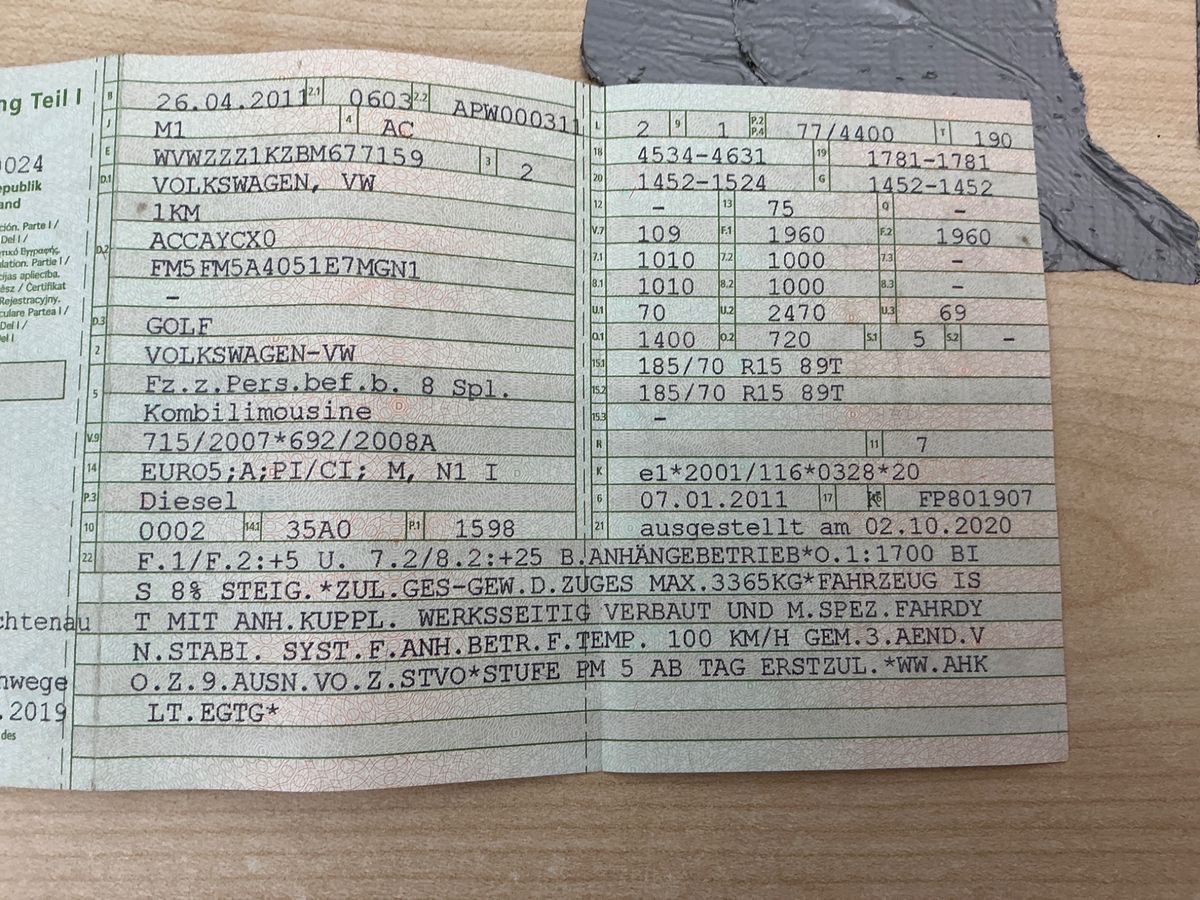 ng Teil I
0024
epublik
and
ción. Parte I /
Del I /
τικό Εγγραφής.
lation. Partie I /
cijas apliecība.
ész / Certifikat
Rejestracyjny.
culare Partea I /
Del I /
el I
chtenau
nwege
.2019
des
B 26.04.2011 2.1 0603 2.2 APW000311
J M1 4 AC
E WVWZZZ1KZBM677159 3 2
D.1 VOLKSWAGEN, VW
1KM
D.2 ACCAYCX0
FM5FM5A4051E7MGN1
–
D.3 GOLF
2 VOLKSWAGEN-VW
5 Fz.z.Pers.bef.b. 8 Spl.
Kombilimousine
V.9 715/2007*692/2008A
14 EURO5;A;PI/CI; M, N1 I
P.3 Diesel
10 0002 14.1 35A0 P.1 1598
L 2 9 1 P.2 P.4 77/4400 T 190
18 4534-4631 19 1781-1781
20 1452-1524 G 1452-1452
12 – 13 75 Q –
V.7 109 F.1 1960 F.2 1960
7.1 1010 7.2 1000 7.3 –
8.1 1010 8.2 1000 8.3 –
U.1 70 U.2 2470 U.3 69
O.1 1400 O.2 720 S.1 5 S.2 –
15.1 185/70 R15 89T
15.2 185/70 R15 89T
15.3 –
R 11 7
K e1*2001/116*0328*20
6 07.01.2011 17 K 16 FP801907
21 ausgestellt am 02.10.2020
22 F.1/F.2:+5 U. 7.2/8.2:+25 B.ANHÄNGEBETRIEB*O.1:1700 BI
S 8% STEIG.*ZUL.GES-GEW.D.ZUGES MAX.3365KG*FAHRZEUG IS
T MIT ANH.KUPPL. WERKSSEITIG VERBAUT UND M.SPEZ.FAHRDY
N.STABI. SYST.F.ANH.BETR.F.TEMP. 100 KM/H GEM.3.AEND.V
O.Z.9.AUSN.VO.Z.STVO*STUFE PM 5 AB TAG ERSTZUL.*WW.AHK
LT.EGTG*